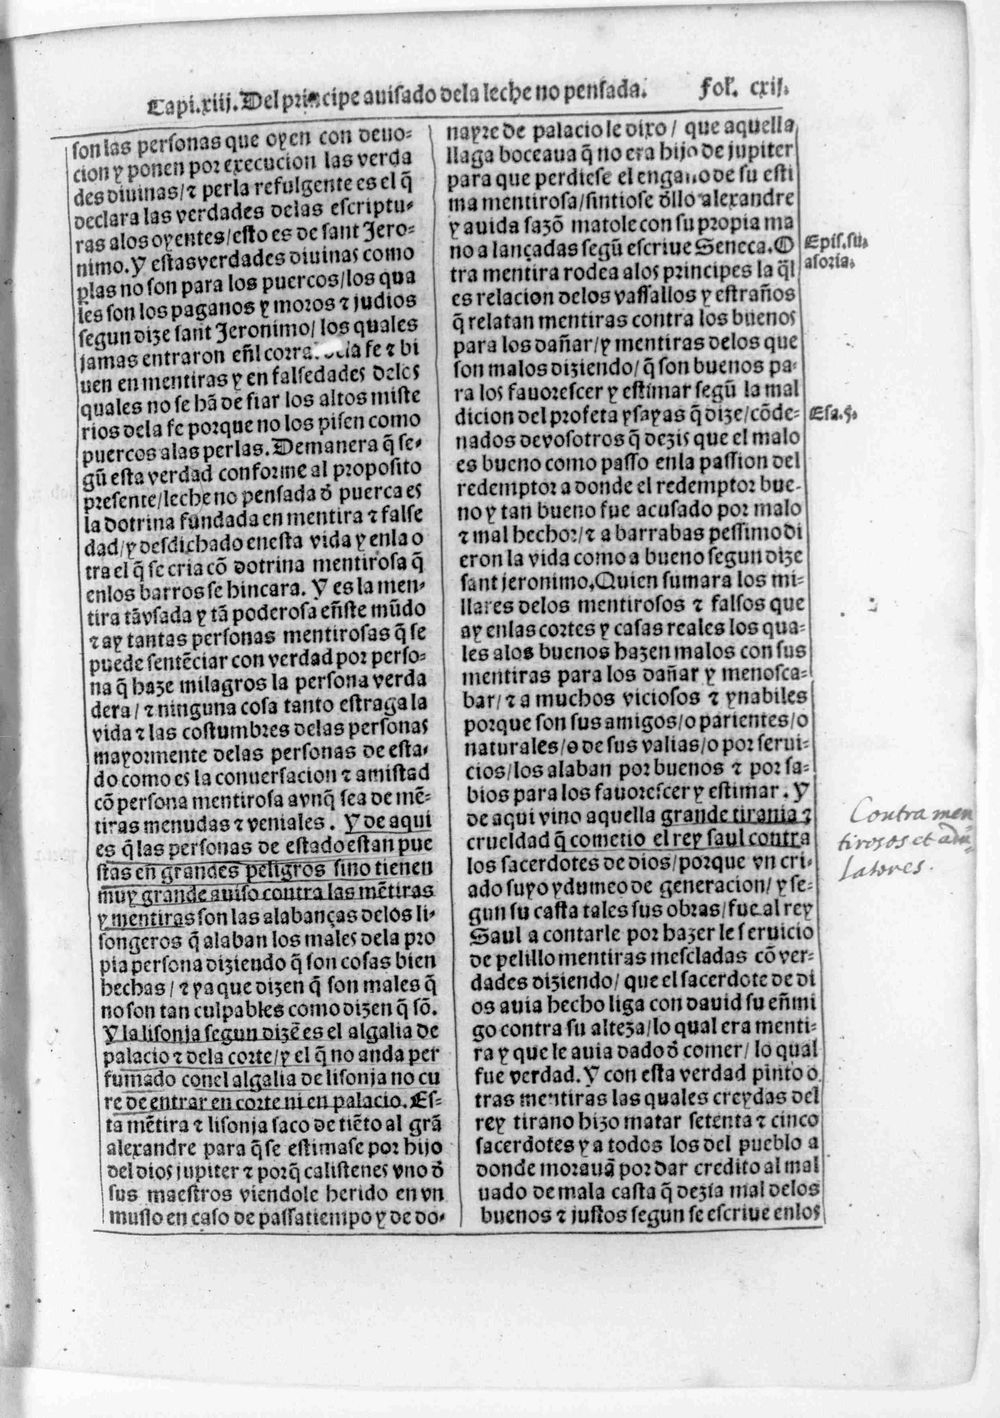 Capi.xiij. Del principe auisado dela leche no pensada. Fol. cxij.
son las personas que oyen con deuo-
cion y ponen por execucion las verda
des diuinas/ ⁊ perla refulgente es el q̃
declara las verdades delas escriptu-
ras alos oyentes/esto es de sant Jero-
nimo. Y estas verdades diuinas como
plas no son para los puercos/los qua
les son los paganos y moros ⁊ judios
segun dize sant Jeronimo/ los quales
jamas entraron eñl corral dela fe ⁊ bi
uen en mentiras y en falsedades delos
quales no se hã de fiar los altos miste
rios dela fe porque no los pisen como
puercos alas perlas. De manera q̃ se-
gũ esta verdad conforme al proposito
presente/leche no pensada õ puerca es
la dotrina fundada en mentira ⁊ false
dad/y desdichado enesta vida y enla o
tra el q̃ se cria cõ dotrina mentirosa q̃
enlos barros se hincara. Y es la men-
tira tã vsada y tã poderosa eñste mũdo
⁊ ay tantas personas mentirosas q̃ se
puede sentẽciar con verdad por perso-
na q̃ haze milagros la persona verda
dera/ ⁊ ninguna cosa tanto estraga la
vida ⁊ las costumbres delas personas
mayormente delas personas de esta-
do como es la conuersacion ⁊ amistad
cõ persona mentirosa avnq̃ sea de mẽ-
tiras menudas ⁊ veniales. Y de aqui
es q̃ las personas de estado estan pue
stas en grandes peligros sino tienen
muy grande auiso contra las mẽtiras
y mentiras son las alabanças delos li-
songeros q̃ alaban los males dela pro
pia persona diziendo q̃ son cosas bien
hechas/ ⁊ ya que dizen q̃ son males q̃
no son tan culpables como dizen q̃ sõ.
Y la lisonja segun dizẽ es el algalia de
palacio ⁊ dela corte/y el q̃ no anda per
fumado conel algalia de lisonja no cu
re de entrar en corte ni en palacio. Es-
ta mẽtira ⁊ lisonja saco de tiẽto al grã
alexandre para q̃ se estimase por hijo
del dios jupiter ⁊ porq̃ calistenes vno õ
sus maestros viendole herido en vn
muslo en caso de passatiempo y de do-
nayre de palacio le dixo/ que aquella
llaga boceaua q̃ no era hijo de jupiter
para que perdiese el engano de su esti
ma mentirosa/sintiose õllo alexandre
y auida sazõ matole con su propia ma
no a lançadas segũ escriue Seneca. O
tra mentira rodea alos principes la q̃l
es relacion delos vassallos y estraños
q̃ relatan mentiras contra los buenos
para los dañar/y mentiras delos que
son malos diziendo/ q̃ son buenos pa-
ra los fauorescer y estimar segũ la mal
dicion del profeta ysayas q̃ dize/ cõde-
nados de vosotros q̃ dezis que el malo
es bueno como passo enla passion del
redemptor a donde el redemptor bue-
no y tan bueno fue acusado por malo
⁊ mal hechor/ ⁊ a barrabas pessimo di
eron la vida como a bueno segun dize
sant jeronimo. Quien sumara los mi-
llares delos mentirosos ⁊ falsos que
ay enlas cortes y casas reales los qua-
les alos buenos hazen malos con sus
mentiras para los dañar y menosca-
bar/ ⁊ a muchos viciosos ⁊ ynabiles
porque son sus amigos/o parientes/o
naturales/o de sus valias/o por serui-
cios/los alaban por buenos ⁊ por sa-
bios para los fauorescer y estimar. Y
de aqui vino aquella grande tirania ⁊
crueldad q̃ cometio el rey saul contra
los sacerdotes de dios/porque vn cri-
ado suyo ydumeo de generacion/ y se-
gun su casta tales sus obras/fue al rey
Saul a contarle por hazerle seruicio
de pelillo mentiras mescladas cõ ver-
dades diziendo/ que el sacerdote de di
os auia hecho liga con dauid su eñmi
go contra su alteza/lo qual era menti-
ra y que le auia dado õ comer/ lo qual
fue verdad. Y con esta verdad pinto o
tras mentiras las quales creydas del
rey tirano hizo matar setenta ⁊ cinco
sacerdotes y a todos los del pueblo a
donde morauã por dar credito al mal
uado de mala casta q̃ dezia mal delos
buenos ⁊ justos segun se escriue enlos
Epis. su
asoria.
Esa.5.
Contra men
tirosos et adu
latores.